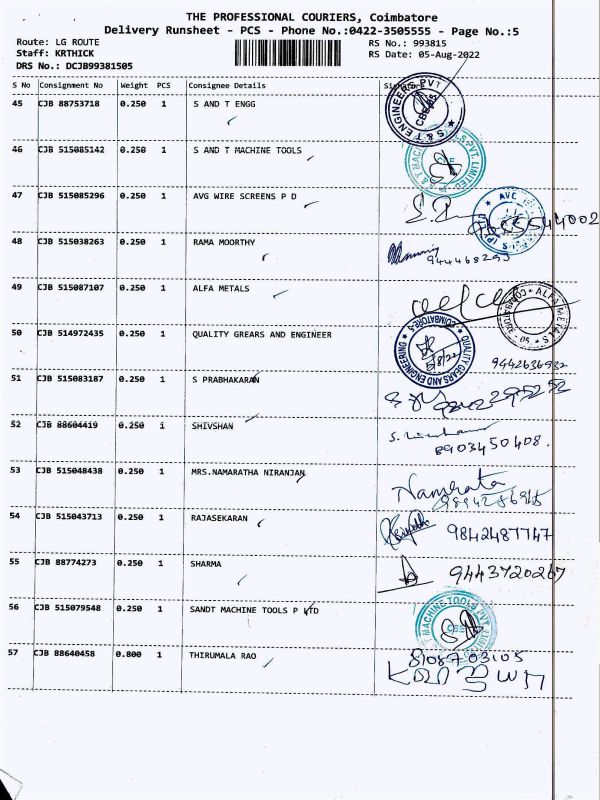 THE PROFESSIONAL COURIERS, Coimbatore
Delivery Runsheet - PCS - Phone No.:0422-3505555 - Page No.:5
Route: LG ROUTE
RS No.: 993815
Staff: KRTHICK
RS Date: 05-Aug-2022
DRS No.: DCJB99381505
S No Consignment No Weight PCS Consignee Details
45 CJB 88753718 0.250 1 S AND T ENGG
46 CJB 515085142 0.250 1 S AND T MACHINE TOOLS
47 CJB 515085296 0.250 1 AVG WIRE SCREENS P D
48 CJB 515038263 0.250 1 RAMA MOORTHY
944468293
49 CJB 515087107 0.250 1 ALFA METALS
ALFA METALS
50 CJB 514972435 0.250 1 QUALITY GREARS AND ENGINEER
QUALITY GEARS AND ENGINEERING COIMBATORE
9442636932
51 CJB 515083187 0.250 1 S PRABHAKARAN
52 CJB 88604419 0.250 1 SHIVSHAN
8903450408.
53 CJB 515048438 0.250 1 MRS.NAMARATHA NIRANJAN
Namrata
54 CJB 515043713 0.250 1 RAJASEKARAN
9842487747
55 CJB 88774273 0.250 1 SHARMA
9443720267
56 CJB 515079548 0.250 1 SANDT MACHINE TOOLS P LTD
MACHINE TOOLS PVT. LIMITED
57 CJB 88640458 0.800 1 THIRUMALA RAO
8108703105